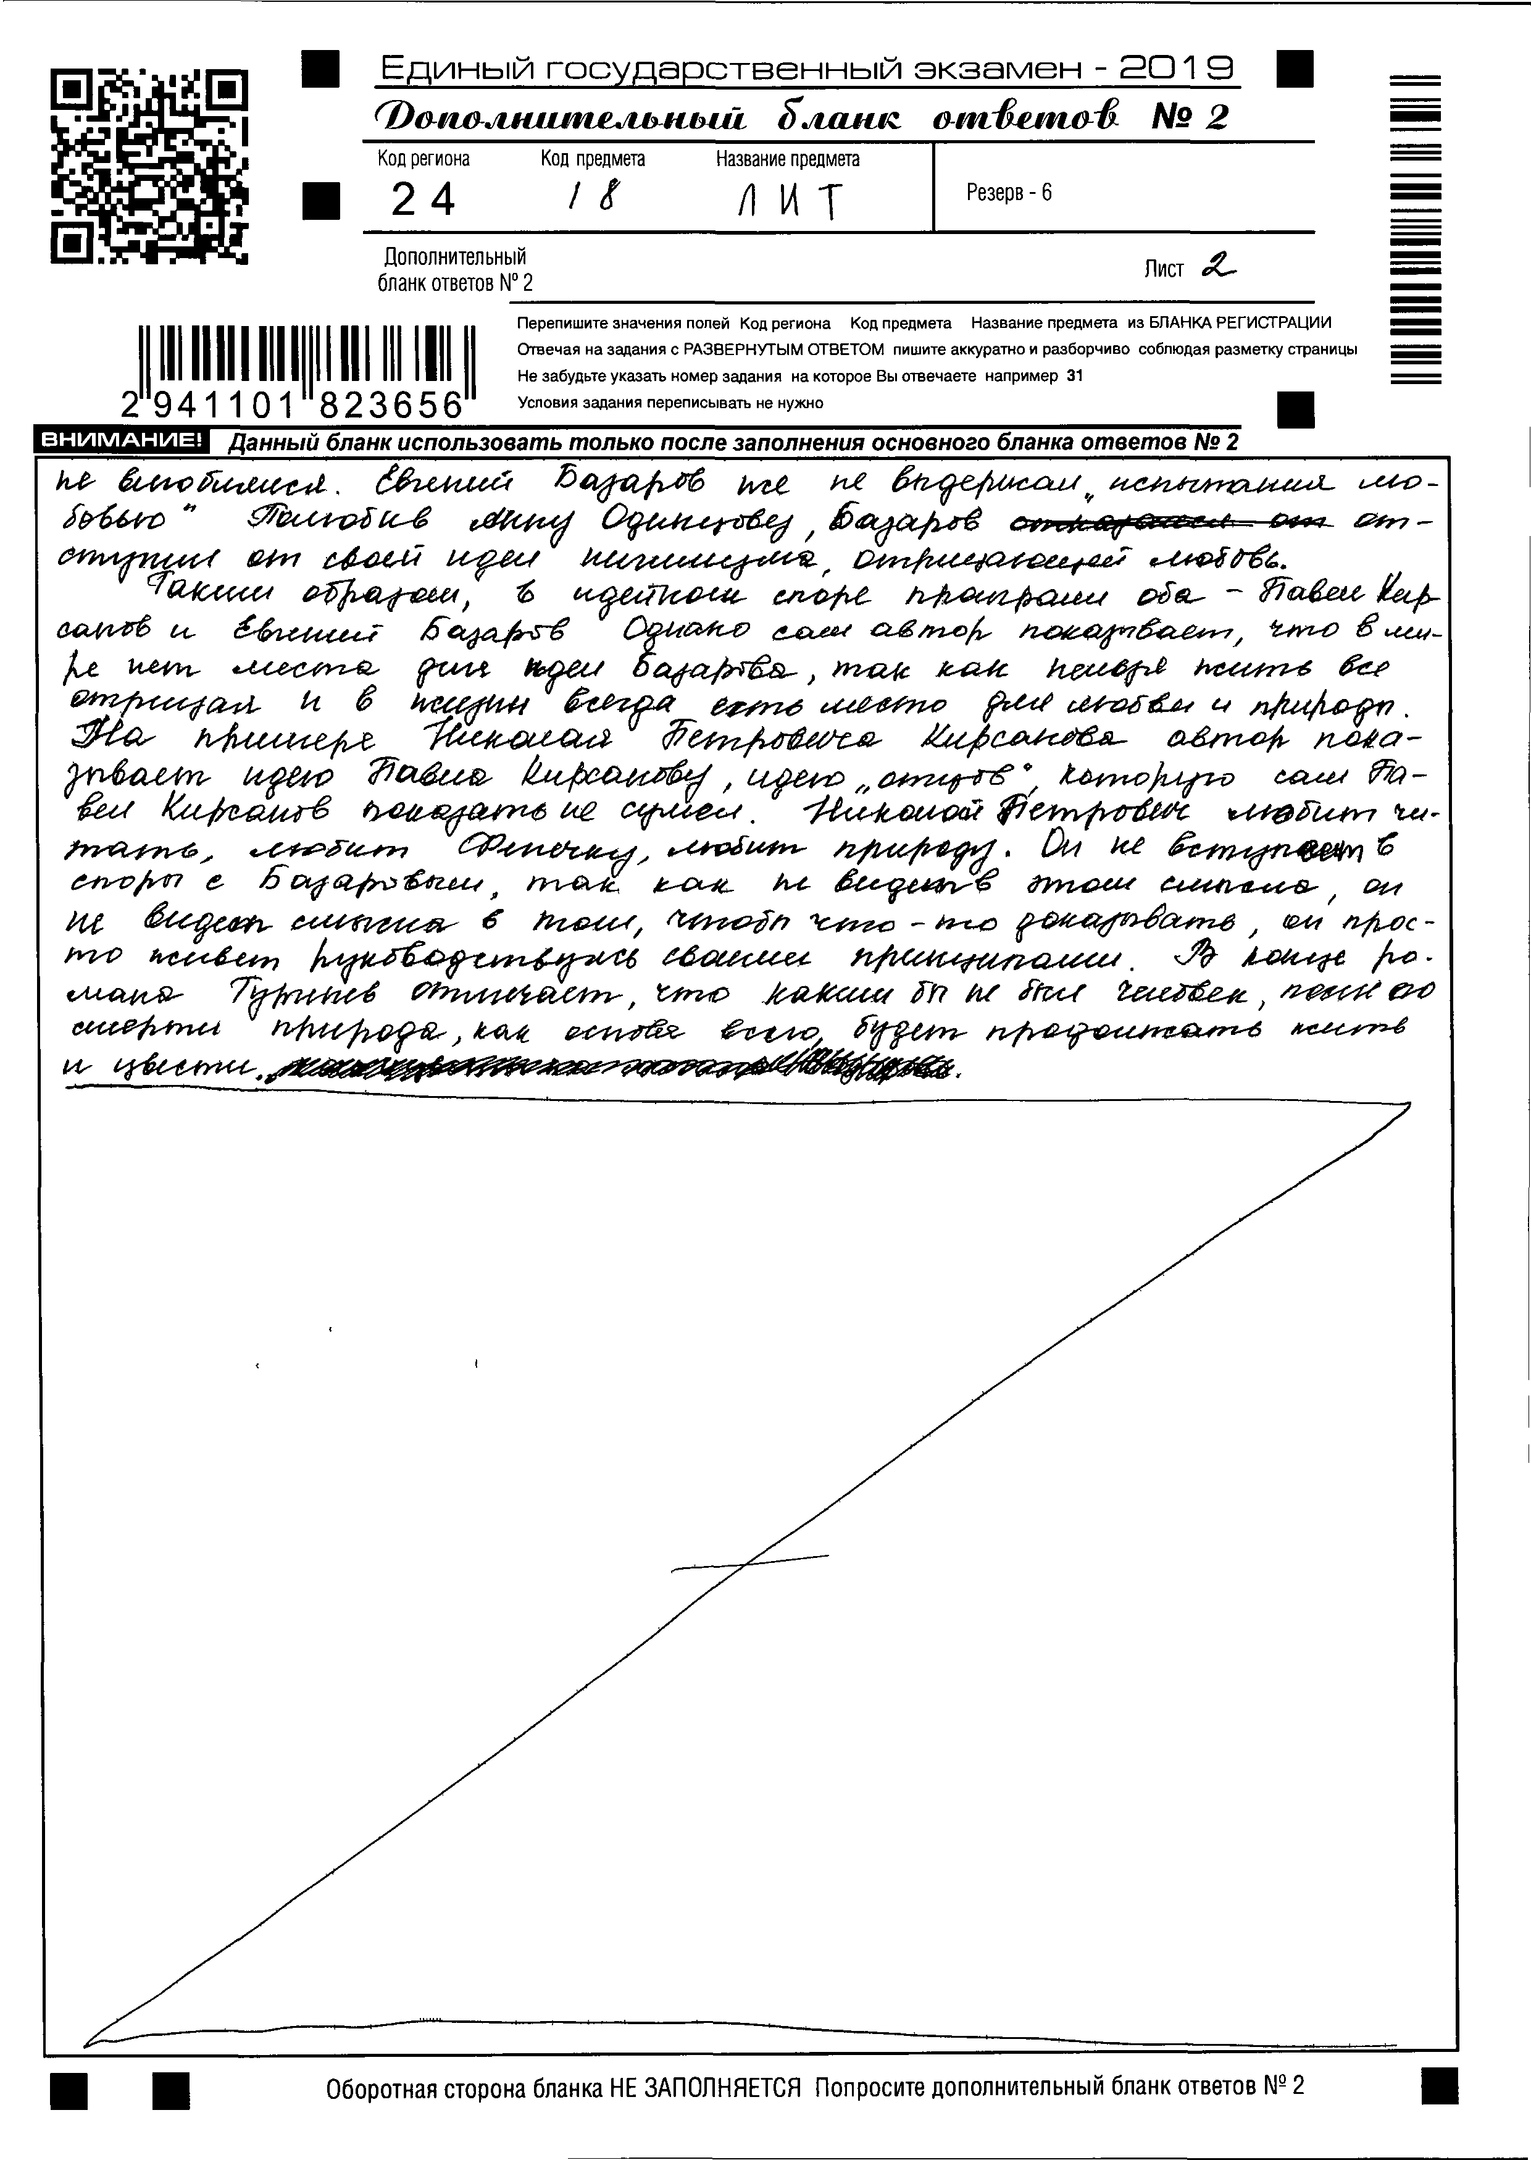 Единый государственный экзамен - 2019
Дополнительный бланк ответов № 2
Код региона Код предмета Название предмета
24 18 ЛИТ
Резерв - 6
Дополнительный
бланк ответов № 2
Лист 2
Перепишите значения полей Код региона Код предмета Название предмета из БЛАНКА РЕГИСТРАЦИИ
Отвечая на задания с РАЗВЕРНУТЫМ ОТВЕТОМ пишите аккуратно и разборчиво соблюдая разметку страницы
Не забудьте указать номер задания на которое Вы отвечаете например 31
Условия задания переписывать не нужно
2 941101 823656
ВНИМАНИЕ! Данный бланк использовать только после заполнения основного бланка ответов № 2
не влюбился. Евгений Базаров же не выдержал „испытания лю-
бовью" Полюбив Анну Одинцову, Базаров от-
ступил от своей идеи нигилизма, отрицающей любовь.
Таким образом, в идейном споре проиграли оба – Павел Кир
санов и Евгений Базаров Однако сам автор показывает, что в ми-
ре нет места для идеи Базарова, так как нельзя жить все
отрицая и в жизни всегда есть место для любви и природы.
На примере Николая Петровича Кирсанова автор пока-
зывает идею Павла Кирсанову, идею „отцов", которую сам Па-
вел Кирсанов показать не сумел. Николай Петрович любит чи-
тать, любит Фенечку, любит природу. Он не вступает в
споры с Базаровым, так как не видет в этом смысла, он
не видет смысла в том, чтобы что-то доказывать, он прос-
то живет руководствуясь своими принципами. В конце ро-
мана Тургенев отмечает, что каким бы не был человек, после его
смерти природа, как основа всего, будет продолжать жить
и цвести.
Оборотная сторона бланка НЕ ЗАПОЛНЯЕТСЯ Попросите дополнительный бланк ответов № 2